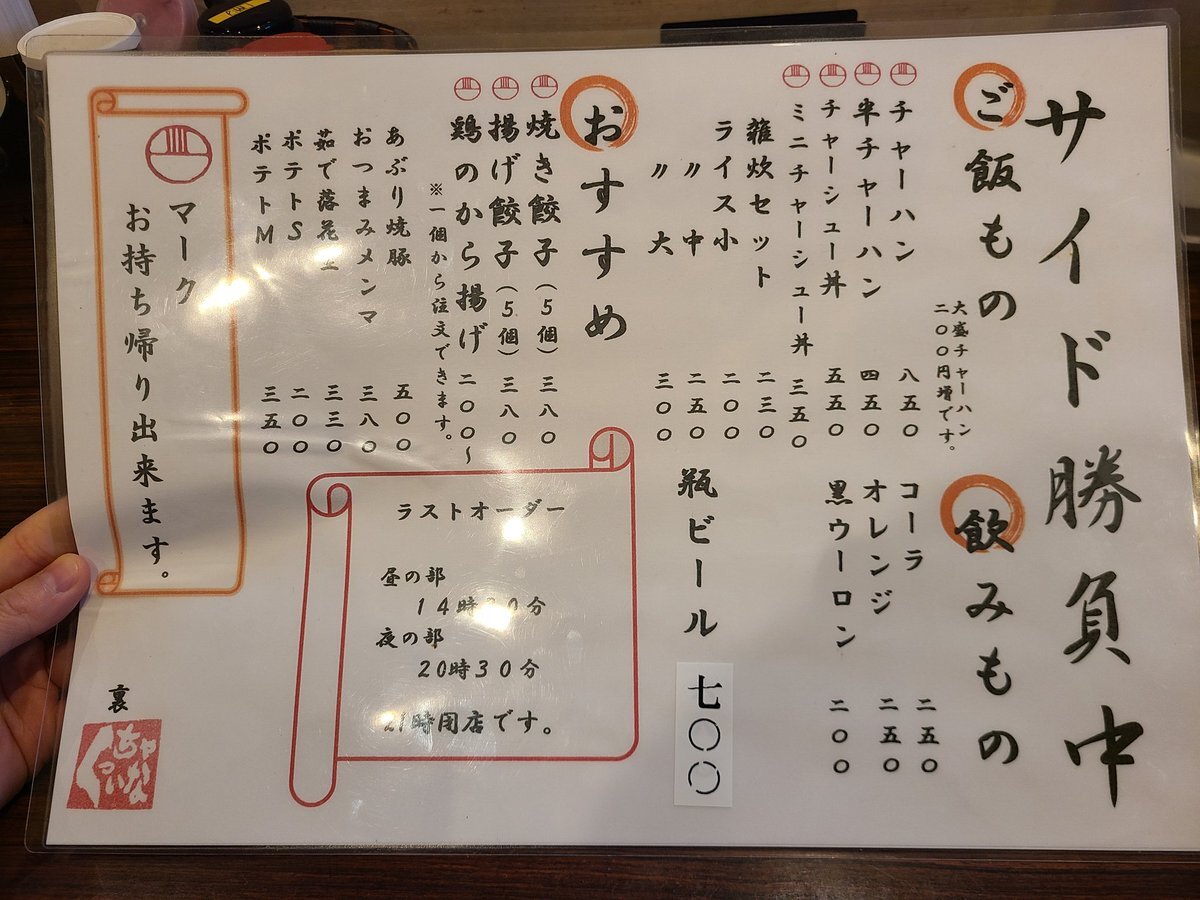 サイド勝負中
ご飯もの
大盛チャーハン
二〇〇円増です。
チャーハン 八五〇
半チャーハン 四五〇
チャーシュー丼 五五〇
ミニチャーシュー丼 三五〇
雑炊セット 二三〇
ライス小 二〇〇
〃 中 二五〇
〃 大 三〇〇
飲みもの
コーラ 二五〇
オレンジ 二五〇
黒ウーロン 二〇〇
瓶ビール 七〇〇
おすすめ
焼き餃子(5個) 三八〇
揚げ餃子(5個) 三八〇
鶏のから揚げ 二〇〇〜
※一個から注文できます。
あぶり焼豚 五〇〇
おつまみメンマ 三八〇
茹で落花生 三三〇
ポテトS 二〇〇
ポテトM 三五〇
ラストオーダー
昼の部
14時30分
夜の部
20時30分
21時閉店です。
マーク
お持ち帰り出来ます。
裏